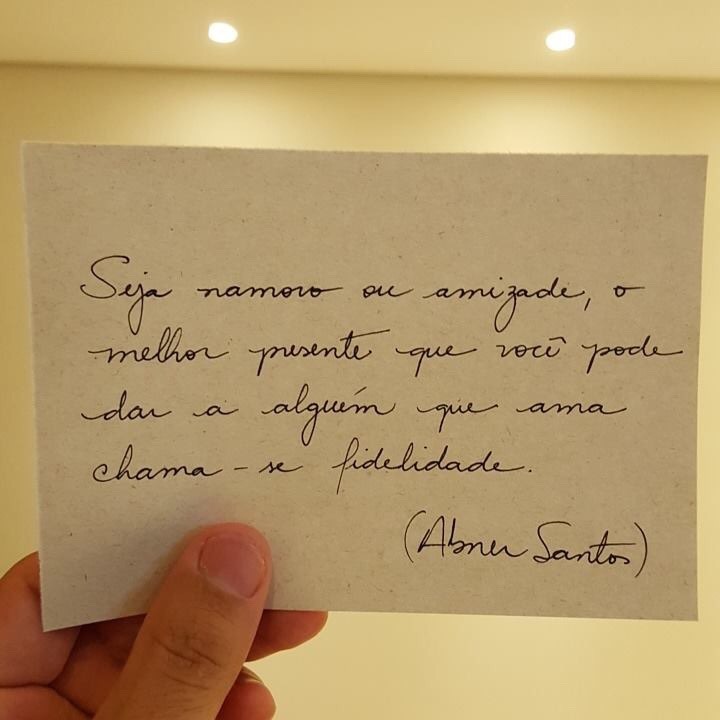 Seja namoro ou amizade, o
melhor presente que você pode
dar a alguém que ama
chama-se fidelidade.
(Abner Santos)